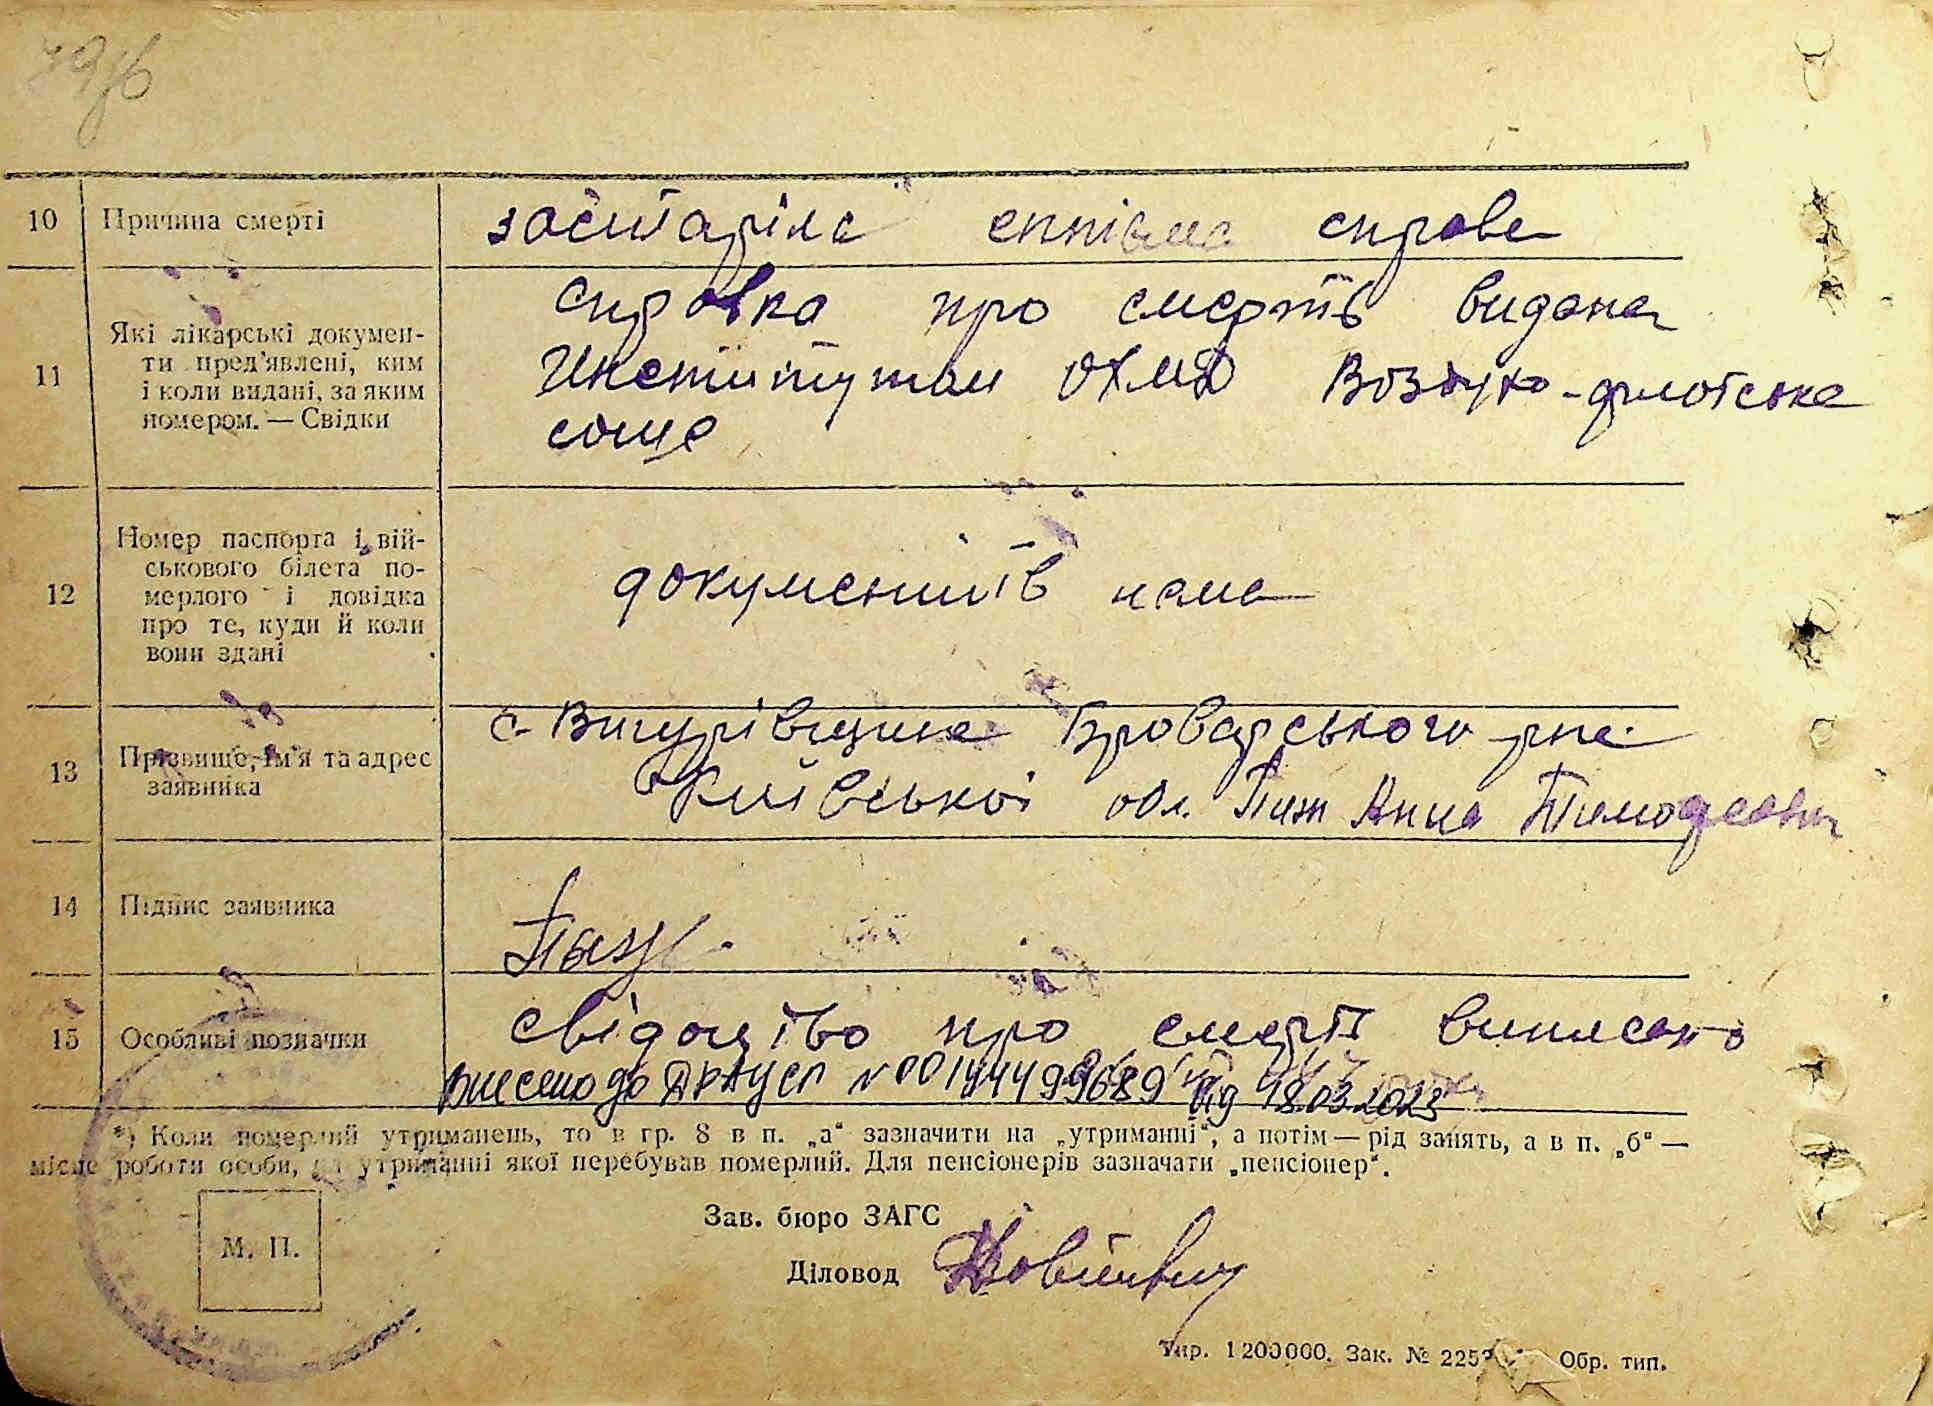 10 Причина смерті застаріла емпієма справа
11 Які лікарські докумен-
ти пред'явлені, ким
і коли видані, за яким
номером. — Свідки
справка про смерть видана
Институтом ОХМД Воздухо-флотське
соше
12 Номер паспорта і вій-
ськового білета по-
мерлого і довідка
про те, куди й коли
вони здані
документів нема
13 Прізвище, ім'я та адрес
заявника
с. Вигурівщина Броварського р-на
Київської обл. Пиж Анна Тимофеевна
14 Підпис заявника
15 Особливі позначки свідоцтво про смерть виписано
Внесено до ДРАЦСГ № 00144499689 від 18.03.2023
*) Коли померлий утриманець, то в гр. 8 в п. „а“ зазначити на „утриманні“, а потім — рід занять, а в п. „б“ —
місце роботи особи, на утриманні якої перебував померлий. Для пенсіонерів зазначати „пенсіонер“.
Зав. бюро ЗАГС
М. П.
Діловод
Тир. 1 200 000. Зак. № 225 Обр. тип.